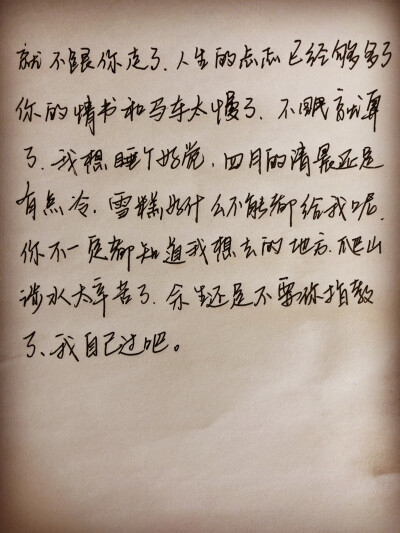 就不跟你走了、人生的忐忑已经够多了
你的情书和马车太慢了、不眠就算
了、我想睡个好觉，四月的清晨还是
有点冷，雪糕好什么不能都给我呢、
你不一定都知道我想去的地方、爬山
涉水太辛苦了、余生还是不要你指教
了、我自己过吧。